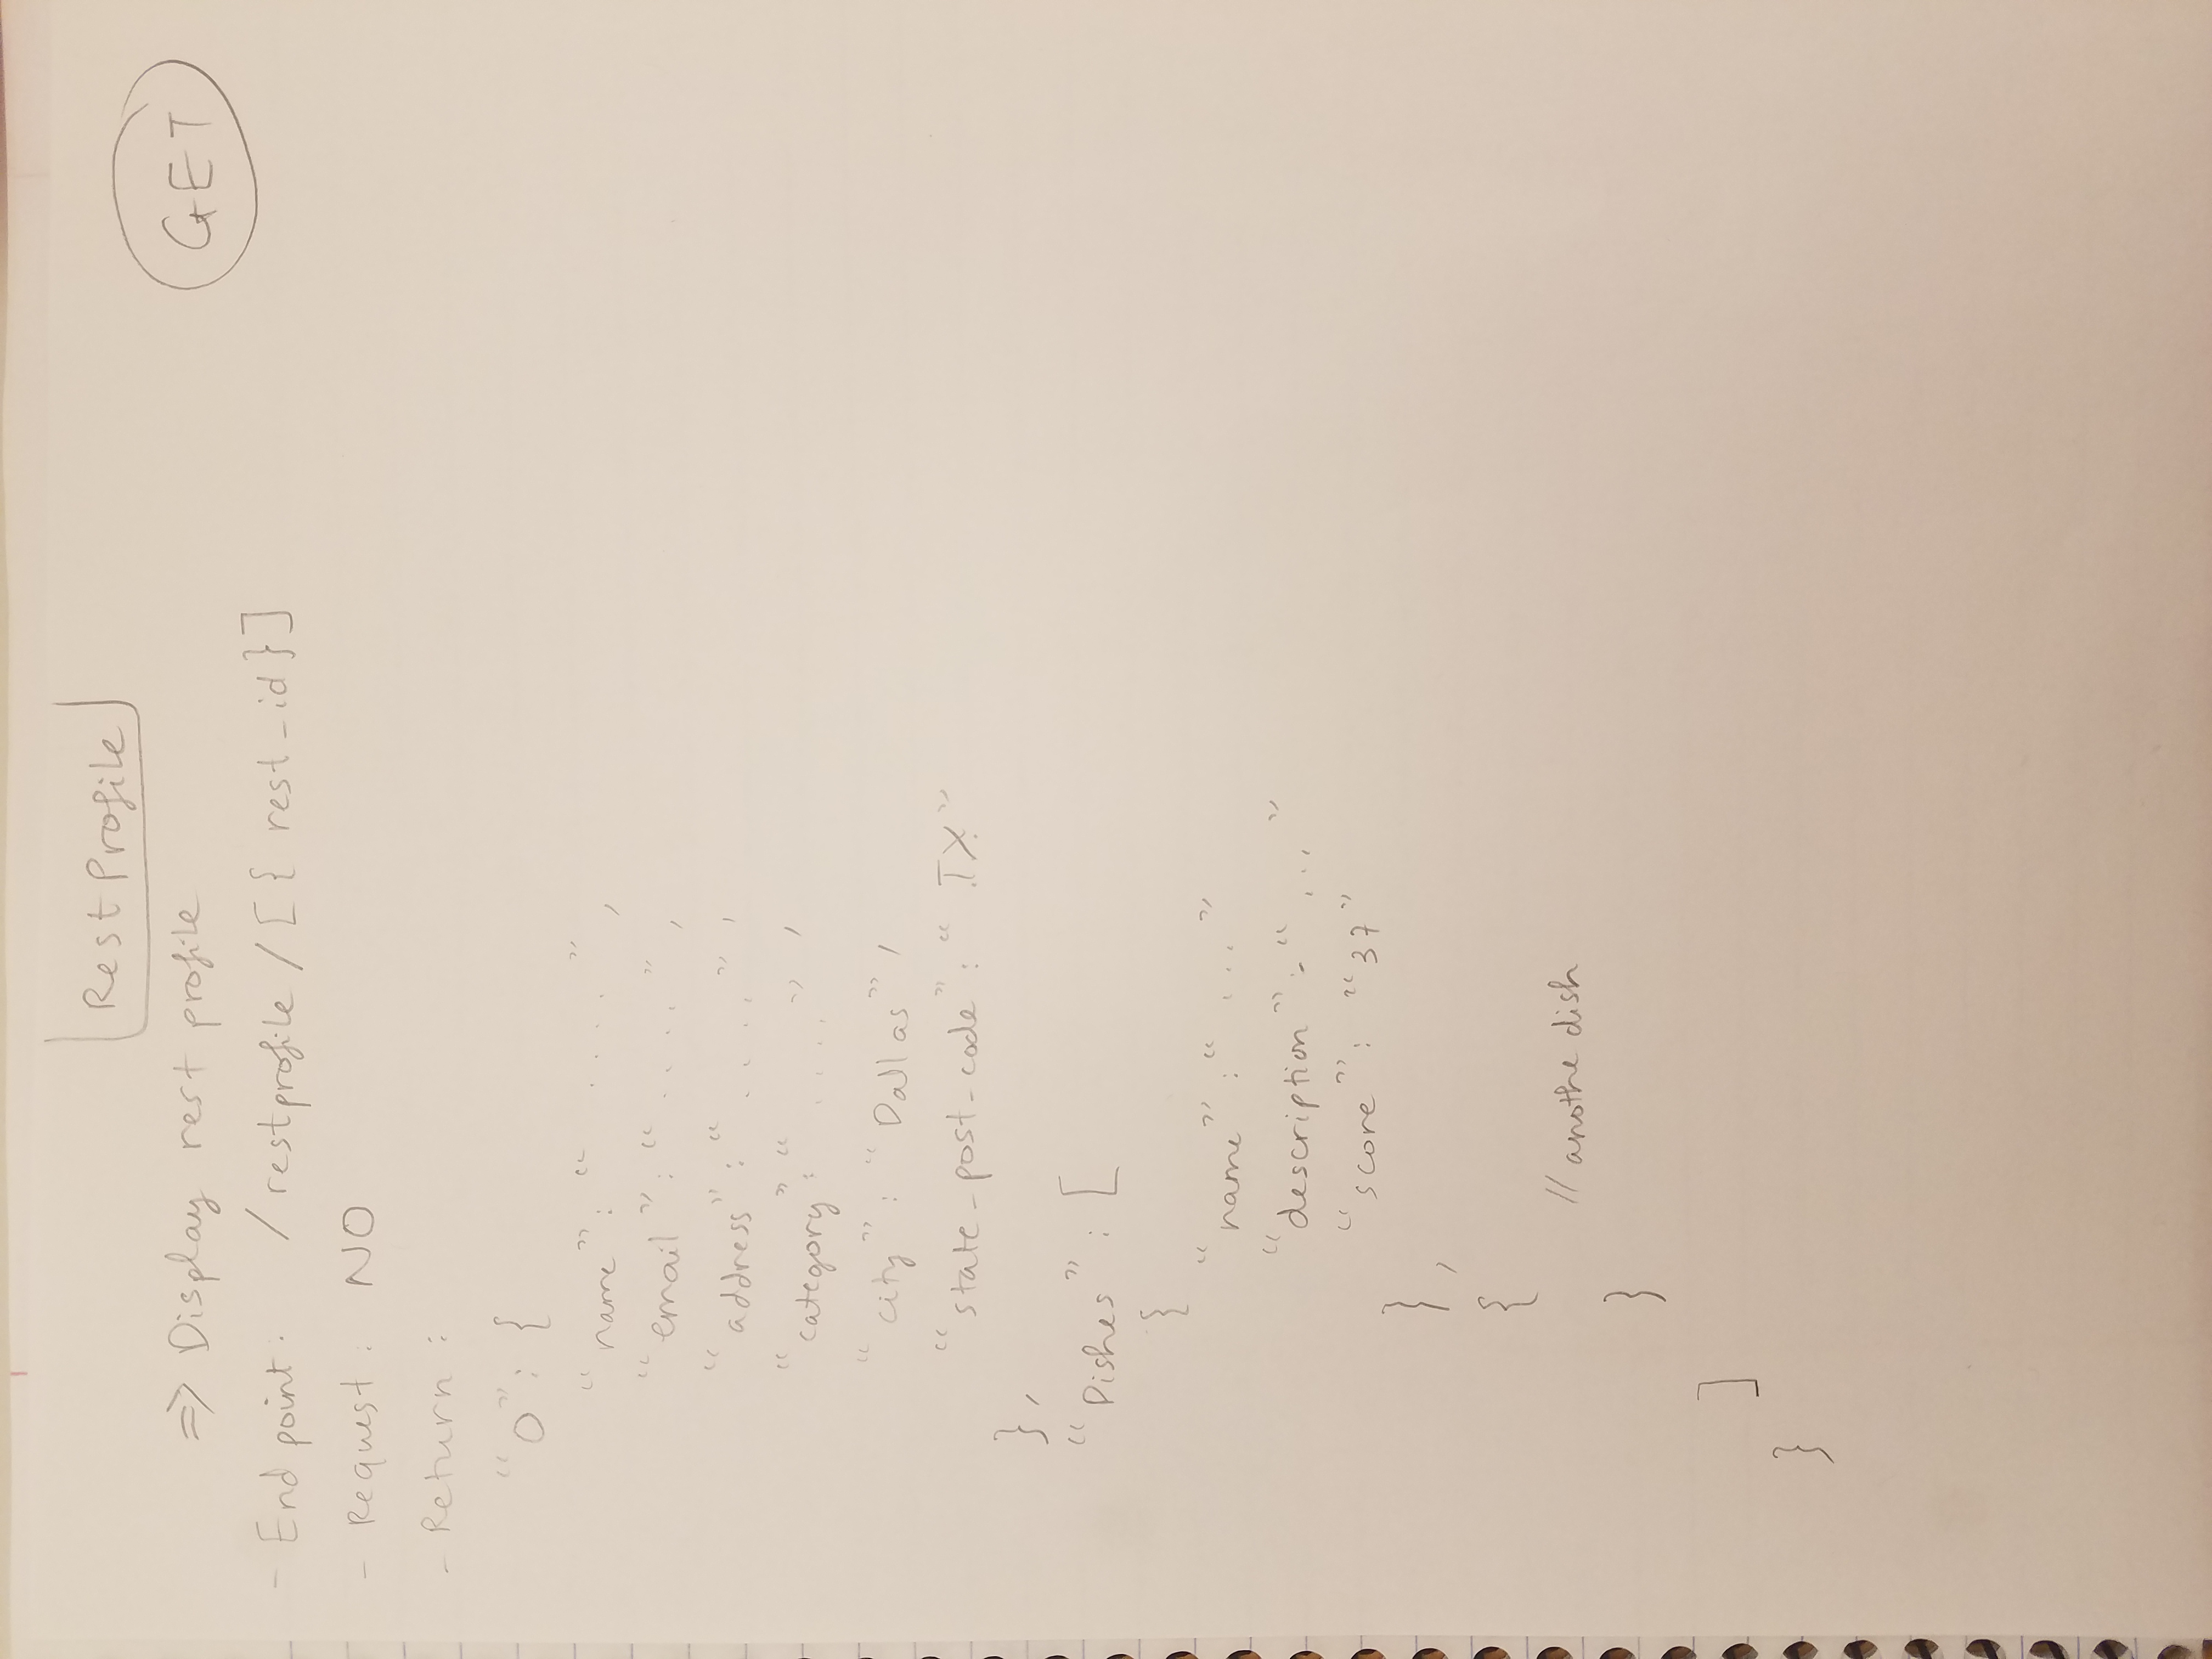 Rest Profile
GET
=> Display rest profile
- End point: /restprofile/[{rest_id}]
- Request: NO
- Return:
"0": {
"name": "....",
"email": "....",
"address": "....",
"category": "....",
"city": "Dallas",
"state_post_code": "TX"
},
"Dishes": [
{
"name": "..."
"description": "..."
"score": "37"
},
{
// anothe dish
}
]
}